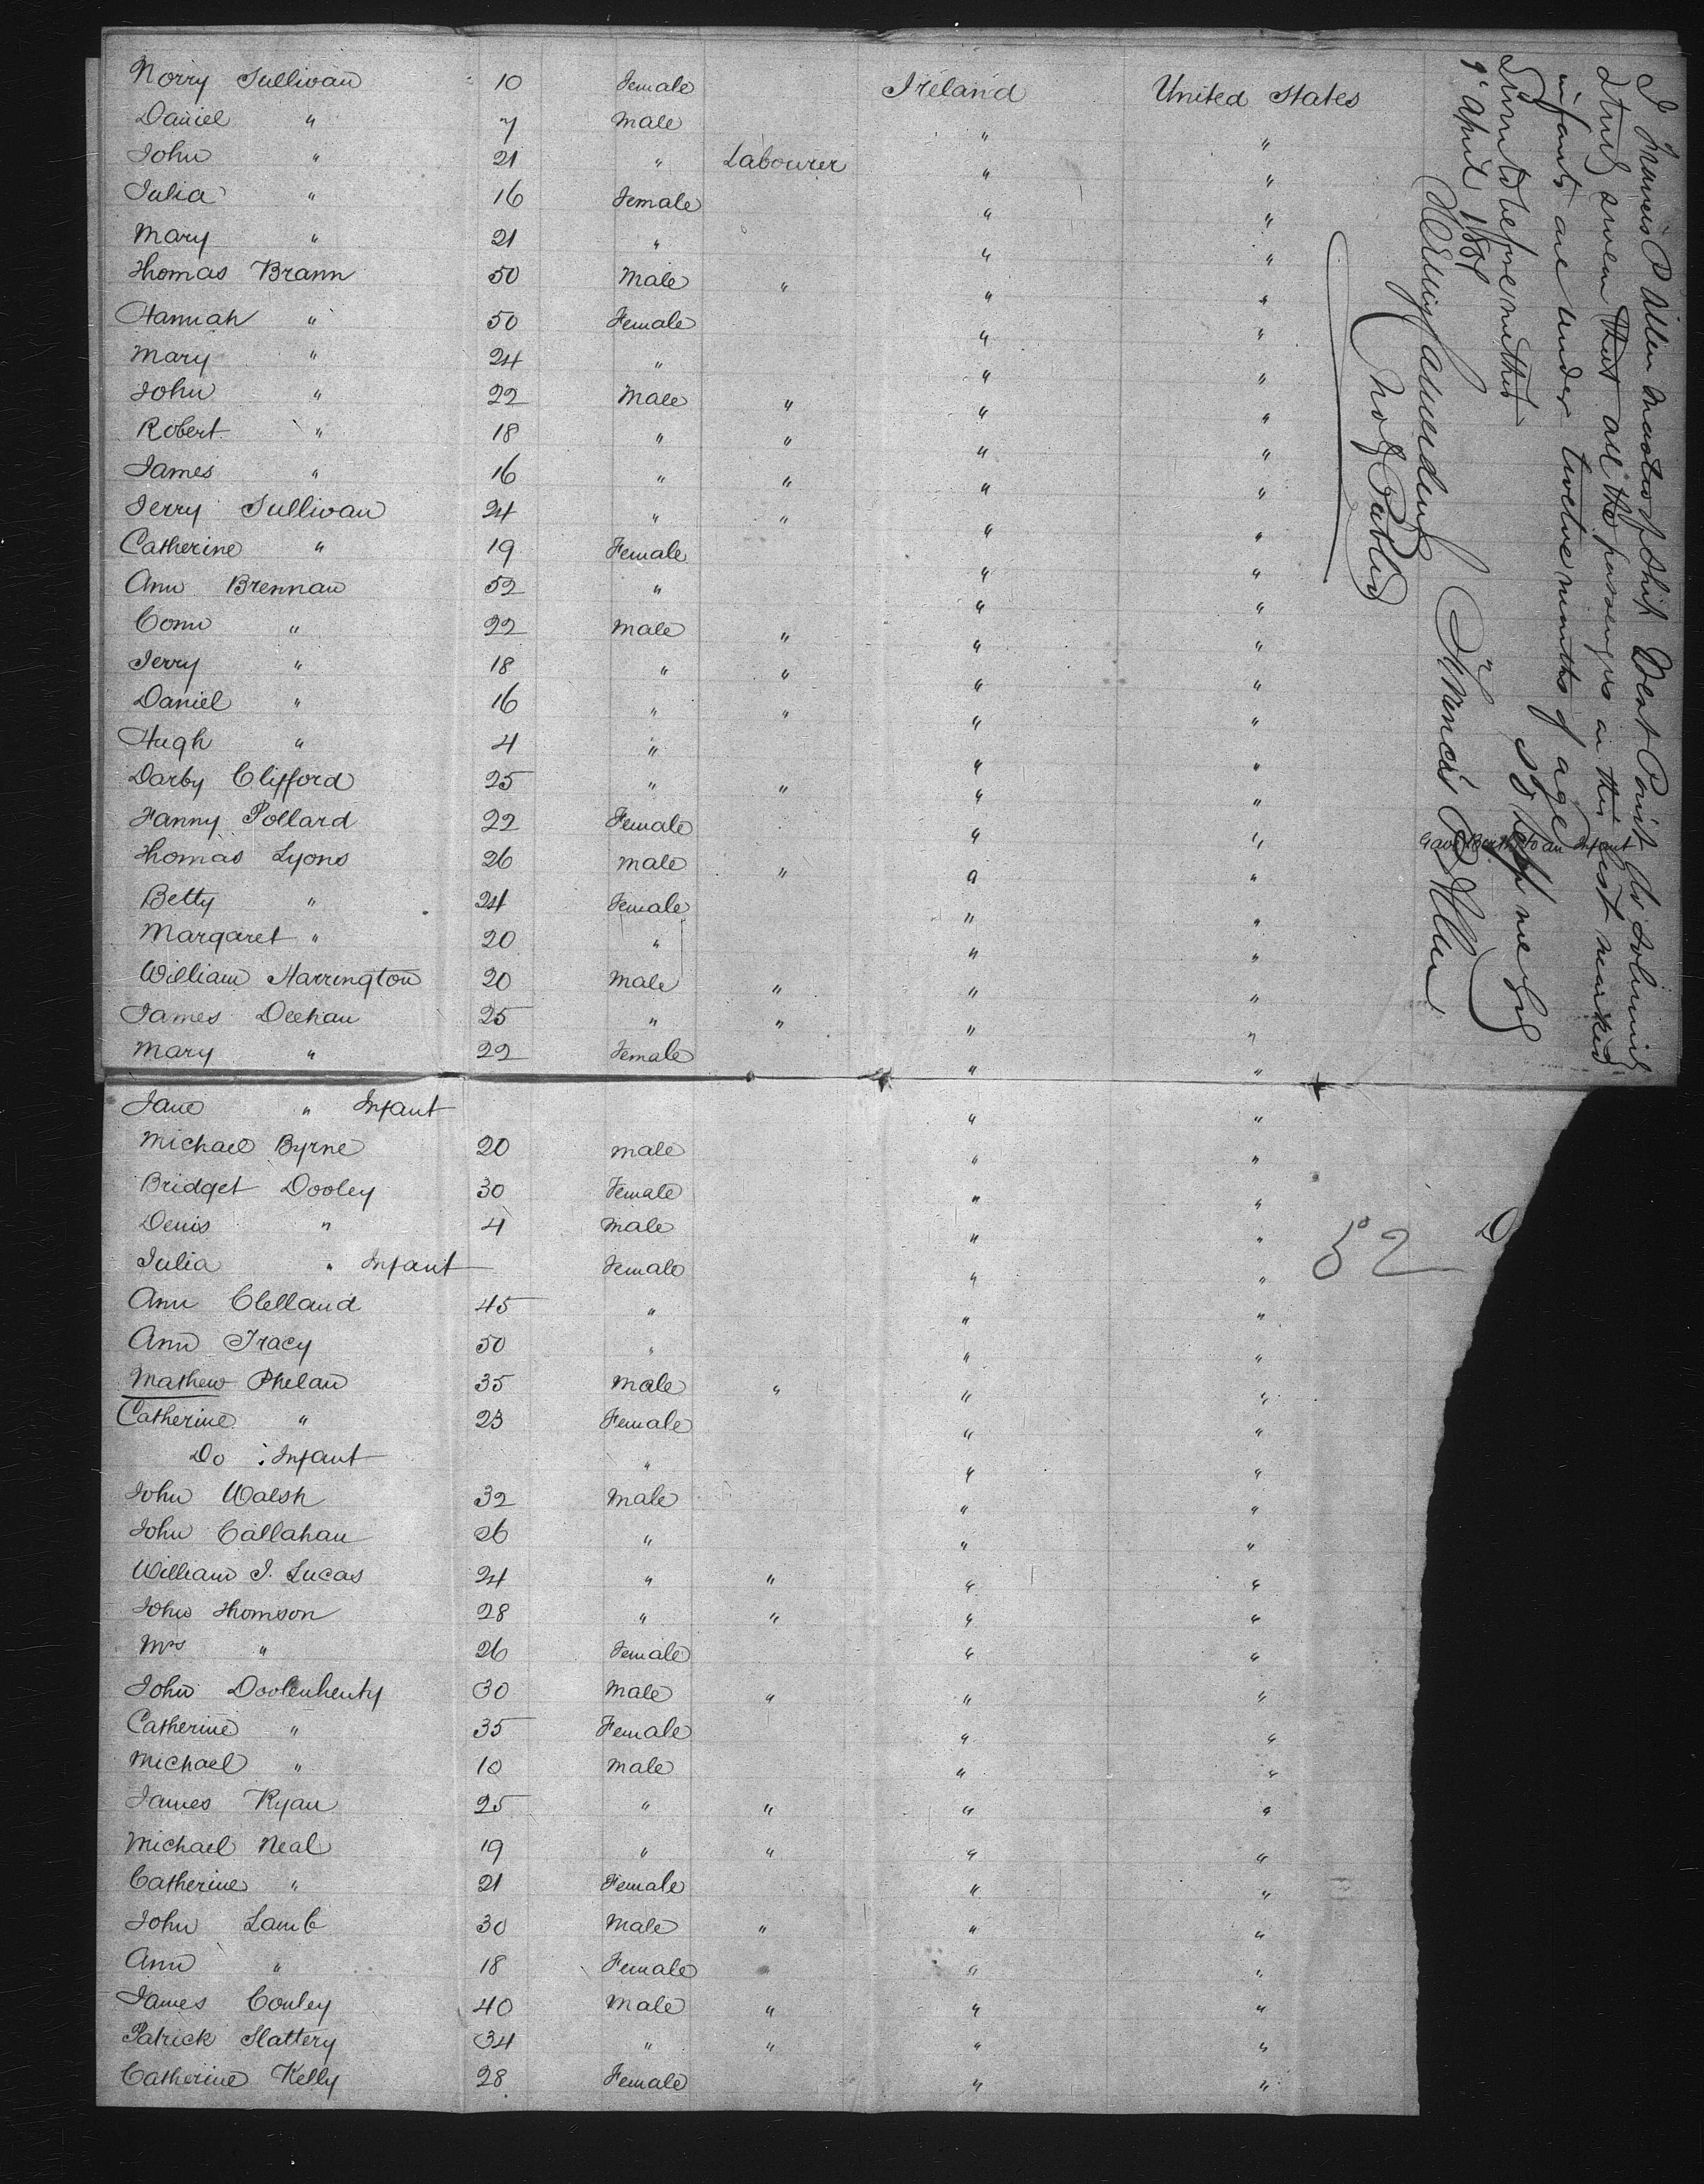 Norry Sullivan 10 Female Ireland United States
Daniel " 7 Male " "
John " 21 " Labourer " "
Julia " 16 Female " "
Mary " 21 " " "
Thomas Brann 50 Male " " "
Hannah " 50 Female " "
Mary " 24 " " "
John " 22 Male " " "
Robert " 18 " " " "
James " 16 " " " "
Jerry Sullivan 24 " " " "
Catherine " 19 Female " "
Ann Brennan 52 " " "
Conn " 22 Male " " "
Jerry " 18 " " " "
Daniel " 16 " " " "
Hugh " 4 " " "
Darby Clifford 25 " " " "
Fanny Pollard 22 Female " " Gave Birth to an Infant
Thomas Lyons 26 Male " " "
Betty " 24 Female " "
Margaret " 20 " " "
William Harrington 20 Male " " "
James Deehan 25 " " " "
Mary " 22 Female " "
Jane " Infant " "
Michael Byrne 20 Male " "
Bridget Dooley 30 Female " "
Denis " 4 Male " "
Julia " Infant Female " "
Ann Clelland 45 " " "
Ann Tracy 50 " " "
Mathew Phelan 35 Male " " "
Catherine " 23 Female " "
Do : Infant " " "
John Walsh 32 Male " "
John Callahan 26 " " "
William J. Lucas 24 " " " "
John Thomson 28 " " " "
Mrs " 26 Female " "
John Doolenhenty 30 Male " " "
Catherine " 35 Female " "
Michael " 10 Male " "
James Ryan 25 " " " "
Michael Neal 19 " " " "
Catherine " 21 Female " "
John Lamb 30 Male " " "
Ann " 18 Female " "
James Conley 40 Male " " "
Patrick Slattery 34 " " " "
Catherine Kelly 28 Female " "
I Francis P Allen Master of Ship West Point do solemnly
swear that all the passengers on this list marked
infants are under twelve months of age
So help me God
Francis P Allen
Sworn to before me this
9" April 1851
Not Public
52
D